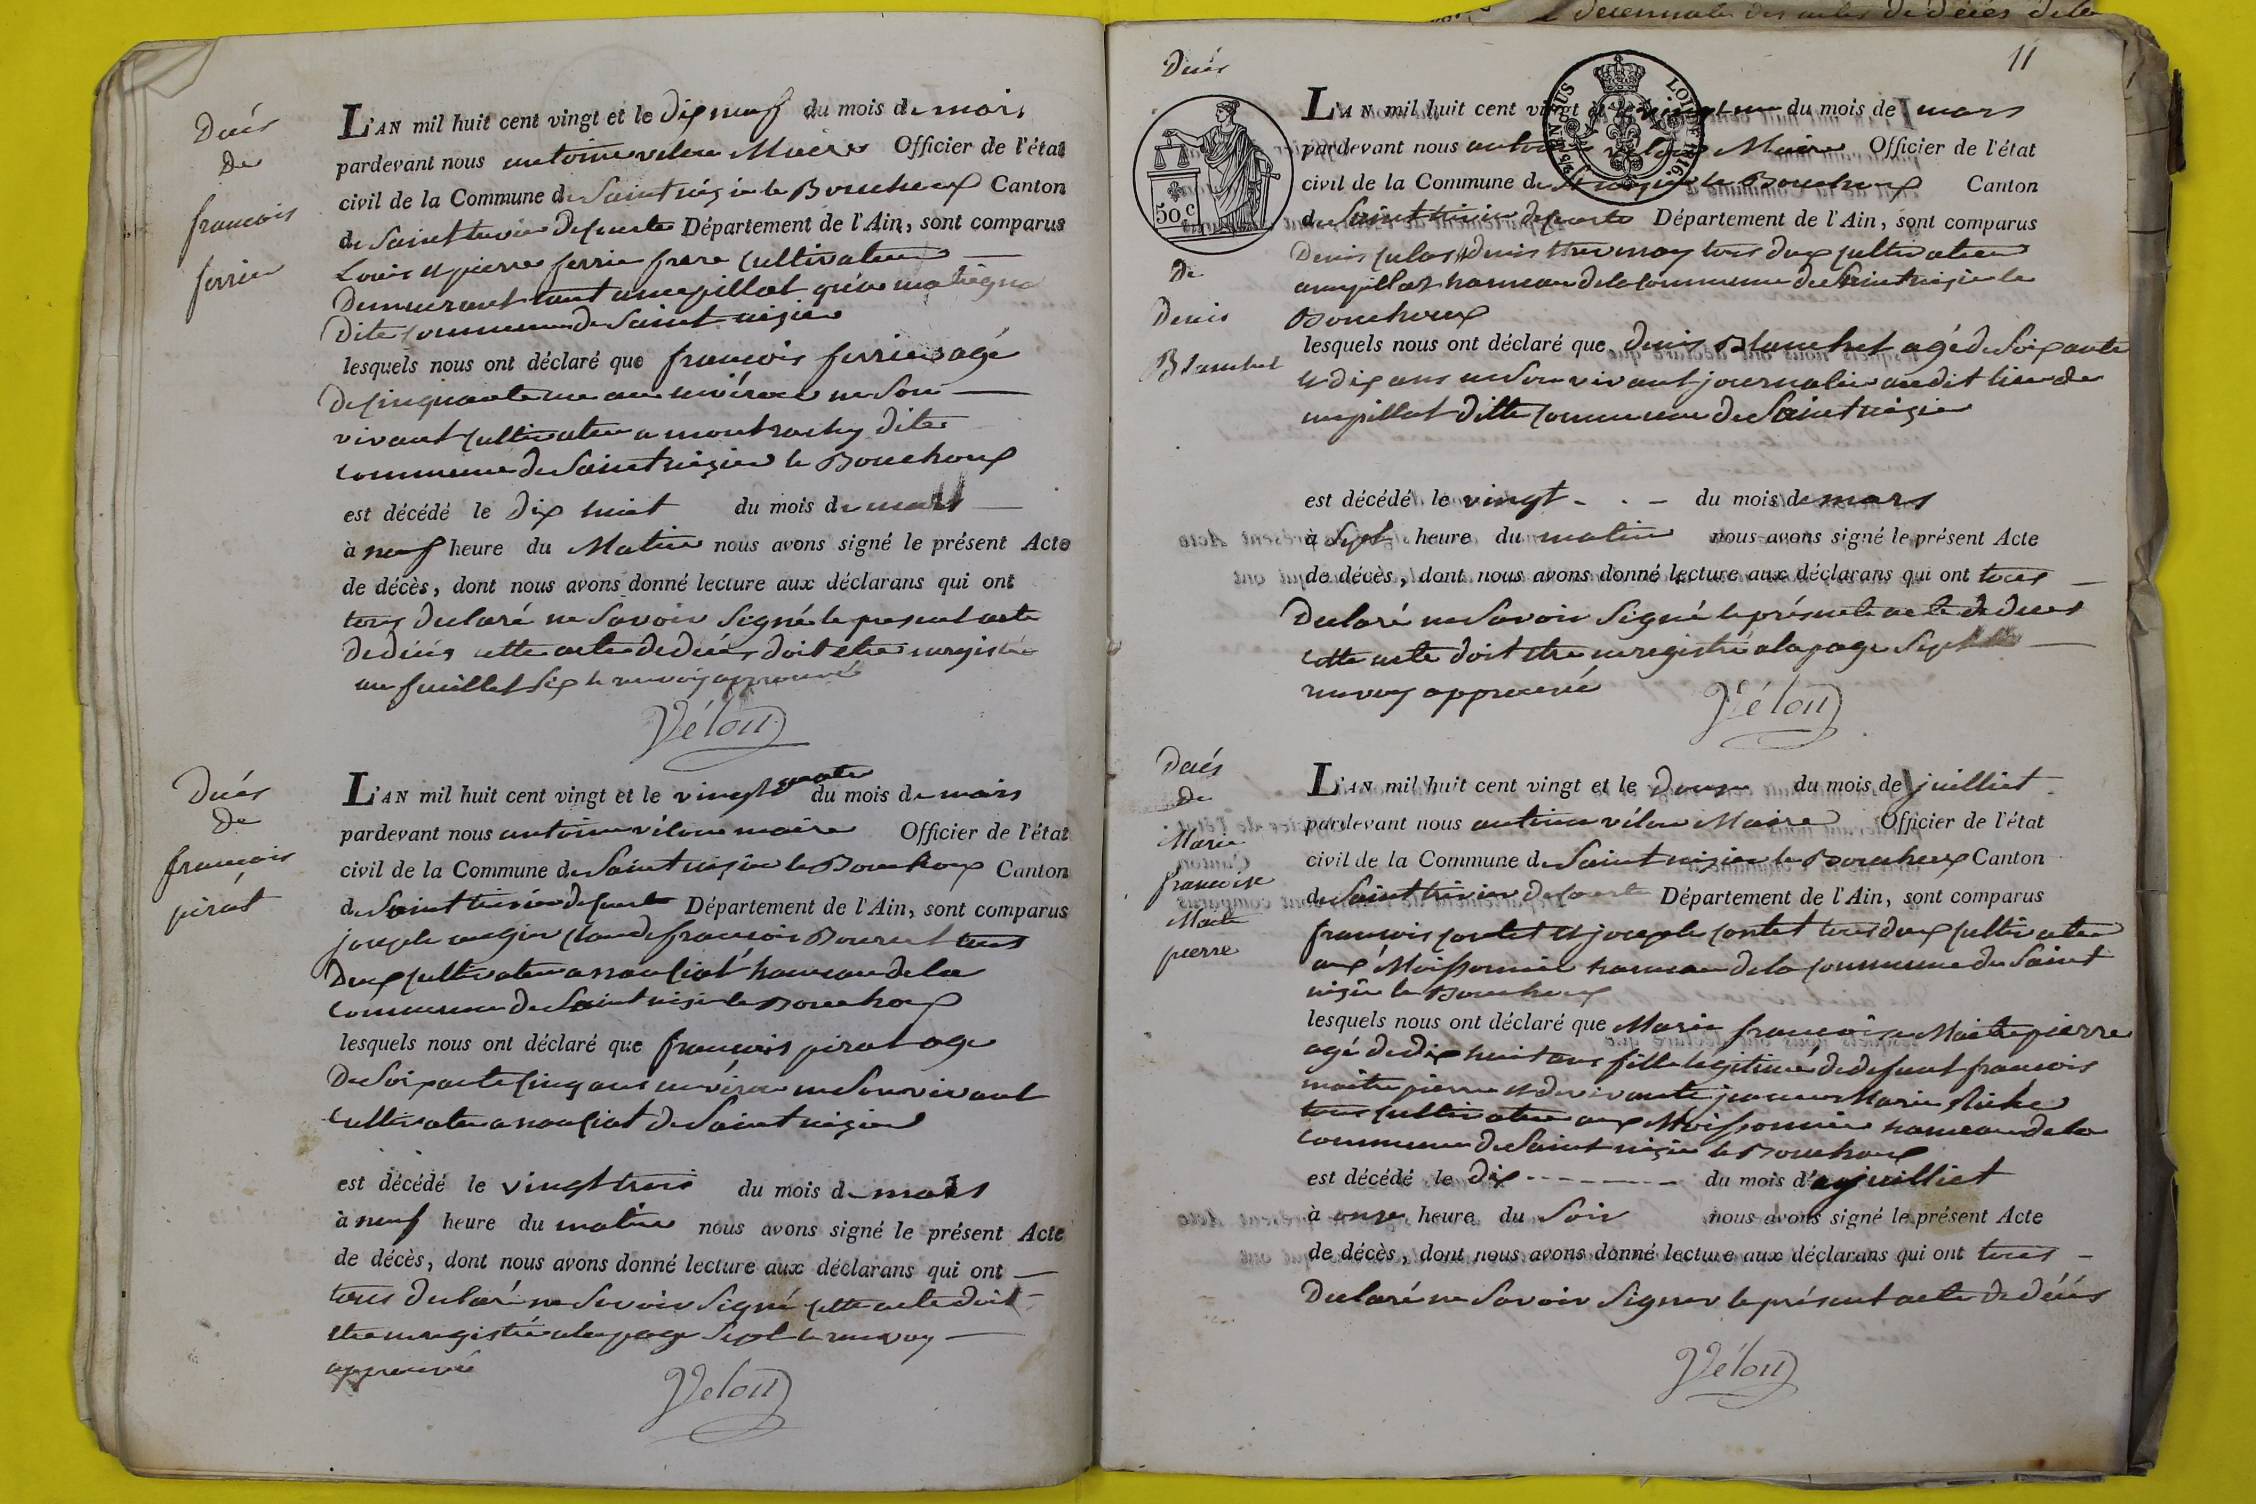 Décés
de
francois
ferrier
L'AN mil huit cent vingt et le dix neuf du mois de mars
pardevant nous antoine velou Maire Officier de l'état
civil de la Commune de Saint nizier le Bouchoux Canton
de Saint trivier de courte Département de l'Ain, sont comparus
Louis et pierre ferrier frere cultivateur
Demeurant tant a
Dite commune de Saint nizier
lesquels nous ont déclaré que francois ferrier agé
De cinquante un ans environ en Son
vivant cultivateur a montrachy Dite
commune de Saint nizier le Bouchoux
est décédé le dix huit du mois de mars
à neuf heure du Matin nous avons signé le présent Acte
de décès, dont nous avons donné lecture aux déclarans qui ont
tous declaré ne Savoir Signé le present acte
de décés cette acte de décés doit etre enregistré
au feuillet Six le renvoy approuvé
Vélou
Décés
de
francois
pirat
L'AN mil huit cent vingt et le vingt quatre du mois de mars
pardevant nous antoine vélou maire Officier de l'état
civil de la Commune de Saint nizier le Bouchoux Canton
de Saint trivier de courte Département de l'Ain, sont comparus
joseph claude francois Bourcet tous
Deux cultivateur a nanciat hameau de la
Commune de Saint nizier le Bouchoux
lesquels nous ont déclaré que francois pirat age
De Soixante cinq ans environ en Son vivant
cultivateur a nanciat de Saint nizier
est décédé le vingt trois du mois de mars
à neuf heure du matin nous avons signé le présent Acte
de décès, dont nous avons donné lecture aux déclarans qui ont
tous declaré ne Savoir Signé cette acte doit
etre enregistré a la page Sept le renvoy
approuvé
Vélou
11
Décés
de
Denis
Blanchet
50 c
LOI DE 1816.
L'AN mil huit cent vingt et le du mois de mars
pardevant nous antoine velou Maire Officier de l'état
civil de la Commune de St nizier le Bouchoux Canton
de Saint trivier de courte Département de l'Ain, sont comparus
Denis et denis tous deux cultivateur
hameau de la commune de Saint nizier le
Bouchoux
lesquels nous ont déclaré que denis Blanchet agé de Soixante
et dix ans en Son vivant journalier audit lieu de
ditte commune de Saint nizier
est décédé le vingt du mois de mars
à Sept heure du matin nous avons signé le présent Acte
de décès, dont nous avons donné lecture aux déclarans qui ont tous
Declaré ne Savoir Signé le présente acte de deces
cette acte doit etre enregistré a la page Sept
renvoy approuvé
Vélou
Décés
de
Marie
francoise
Maitre
pierre
L'AN mil huit cent vingt et le Douze du mois de juilliet
pardevant nous antoine vélou Maire Officier de l'état
civil de la Commune de Saint nizier le Bouchoux Canton
de Saint trivier de courte Département de l'Ain, sont comparus
francois contet et joseph contet tous deux cultivateur
aux Moissonnier hameau de la commune de Saint
nizier le Bouchoux
lesquels nous ont déclaré que Marie francoise Maitrepierre
agé de dix huit ans fille légitime de defunt francois
maitre pierre et de vivante jeanne Marie
tous cultivateur aux Moissonnier hameau de la
commune de Saint nizier le Bouchoux
est décédé le dix du mois d juilliet
à onze heure du Soir nous avons signé le présent Acte
de décès, dont nous avons donné lecture aux déclarans qui ont tous
Declaré ne Savoir Signer le présent acte de décés
Vélou